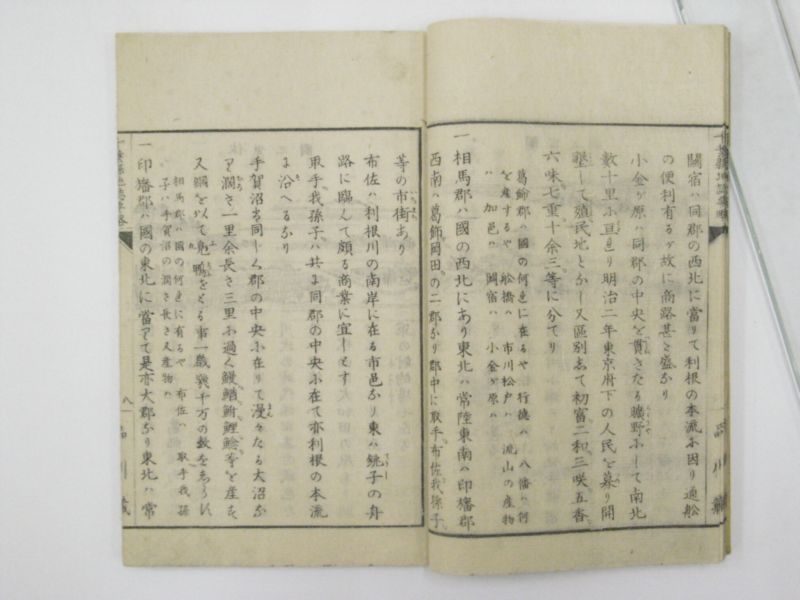 關宿ハ同郡の西北に當りて利根の本流ふ因り通舩
の便利有るヶ故に商路甚さ盛かり
小金ヶ原ハ同郡の中央を貫きたる曠野ふして南北
數十里ふ亘り明治二年東京府下の人民を募り開
墾して殖民地とかし又區別志て初富二和三咲五香
六味七重十余三等に分てり
葛飾郡ハ國の何邊に在るや 行德ハ 八幡ハ何
を産するや 舩橋ハ 市川松戸ハ 流山の産物
ハ 加邑ハ 關宿ハ 小金ヶ原ハ
一 相馬郡ハ國の西北にあり東北ハ常陸東南ハ印旛郡
西南ハ葛飾岡田の二郡かり郡中に取手布佐我孫子
等の市街あり
布佐ハ利根川の南岸に在る市邑かり東ハ銚子の舟
路に臨んて頗る商業に宜しとす
取手我孫子ハ共ふ同郡の中央ふ在て亦利根の本流
ふ沿へるかり
手賀沼ハ同しく郡の中央ふ在りて漫々たる大沼か
り濶さ一里余長さ三里ふ過く鰻鯔鮒鯉鯰等を産す
又網を以て鳧鴨をとる事一歳幾千万の数を志らす
相馬郡ハ國の何邊に有るや 布佐ハ 取手我孫
子ハ 手賀沼の濶さ長さ又産物ハ
一 印旛郡ハ國の東北に當りて是亦大郡かり東北ハ常
八
品川藏